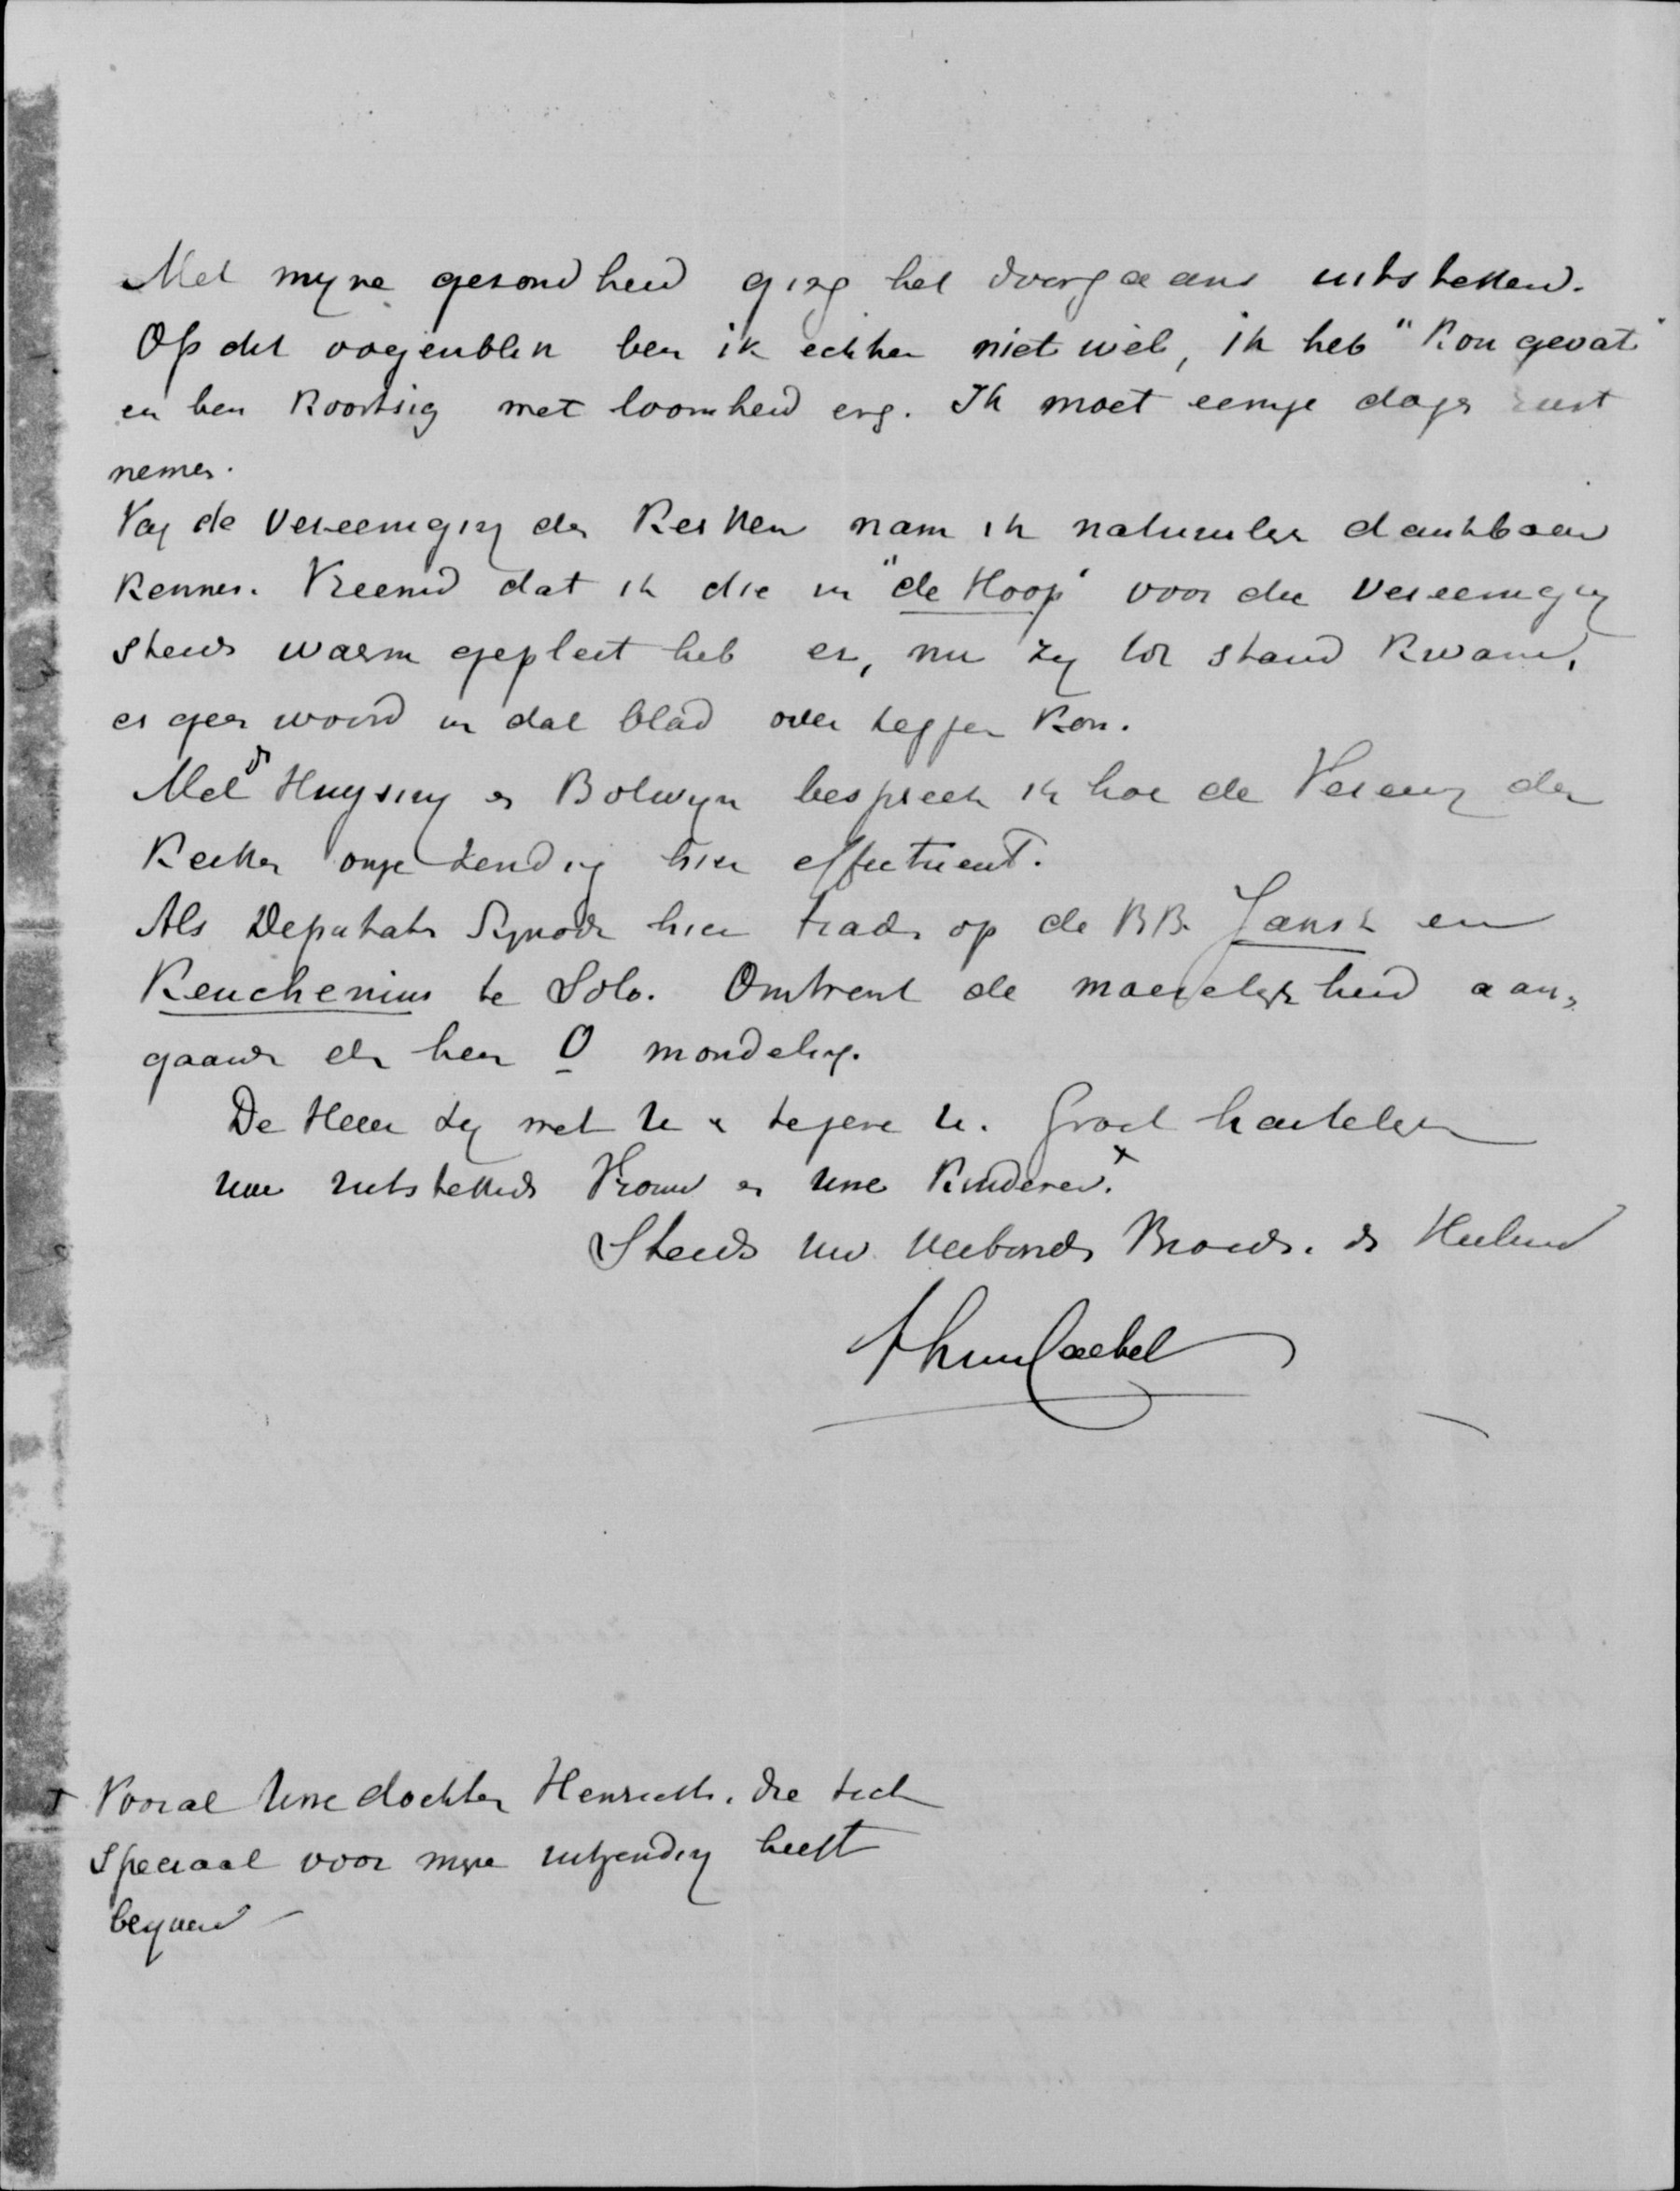 Met myne gezondheid ging het doorgaans uitstekend.
Op dit oogenblik ben ik echter niet wèl, ik heb "kou gevat"
en ben koortsig met loomheid enz. Ik moet eenige dagen rust
nemen.
Van de Vereeniging der Kerken nam ik natuurlyk dankbaar
kennis. Vreemd dat ik die in "de Hoop" voor die Vereeniging
steeds warm gepleit heb en, nu zy tot stand kwam,
er geen woord in dat blad over zeggen kon.
Met ds Huysing en Bolwyn bespreek ik hoe de Vereenig der
Kerken onze zending hier effectueert.
Als Deputaten Synode hier traden op de BB. Jansz en
Keuchenius te Solo. Omtrent de moeielykheid aan-
gaande den heer O mondeling.
De Heer zy met U & zegene U. Groet hartelyk
uwe uitstekende Vrouw en Uwe Kinderen. x
Steeds uw verbonden Broeder. ds Heeland
x Vooral Uwe dochter Henriette. die zich
speciaal voor myne uitzending heeft
beyverd